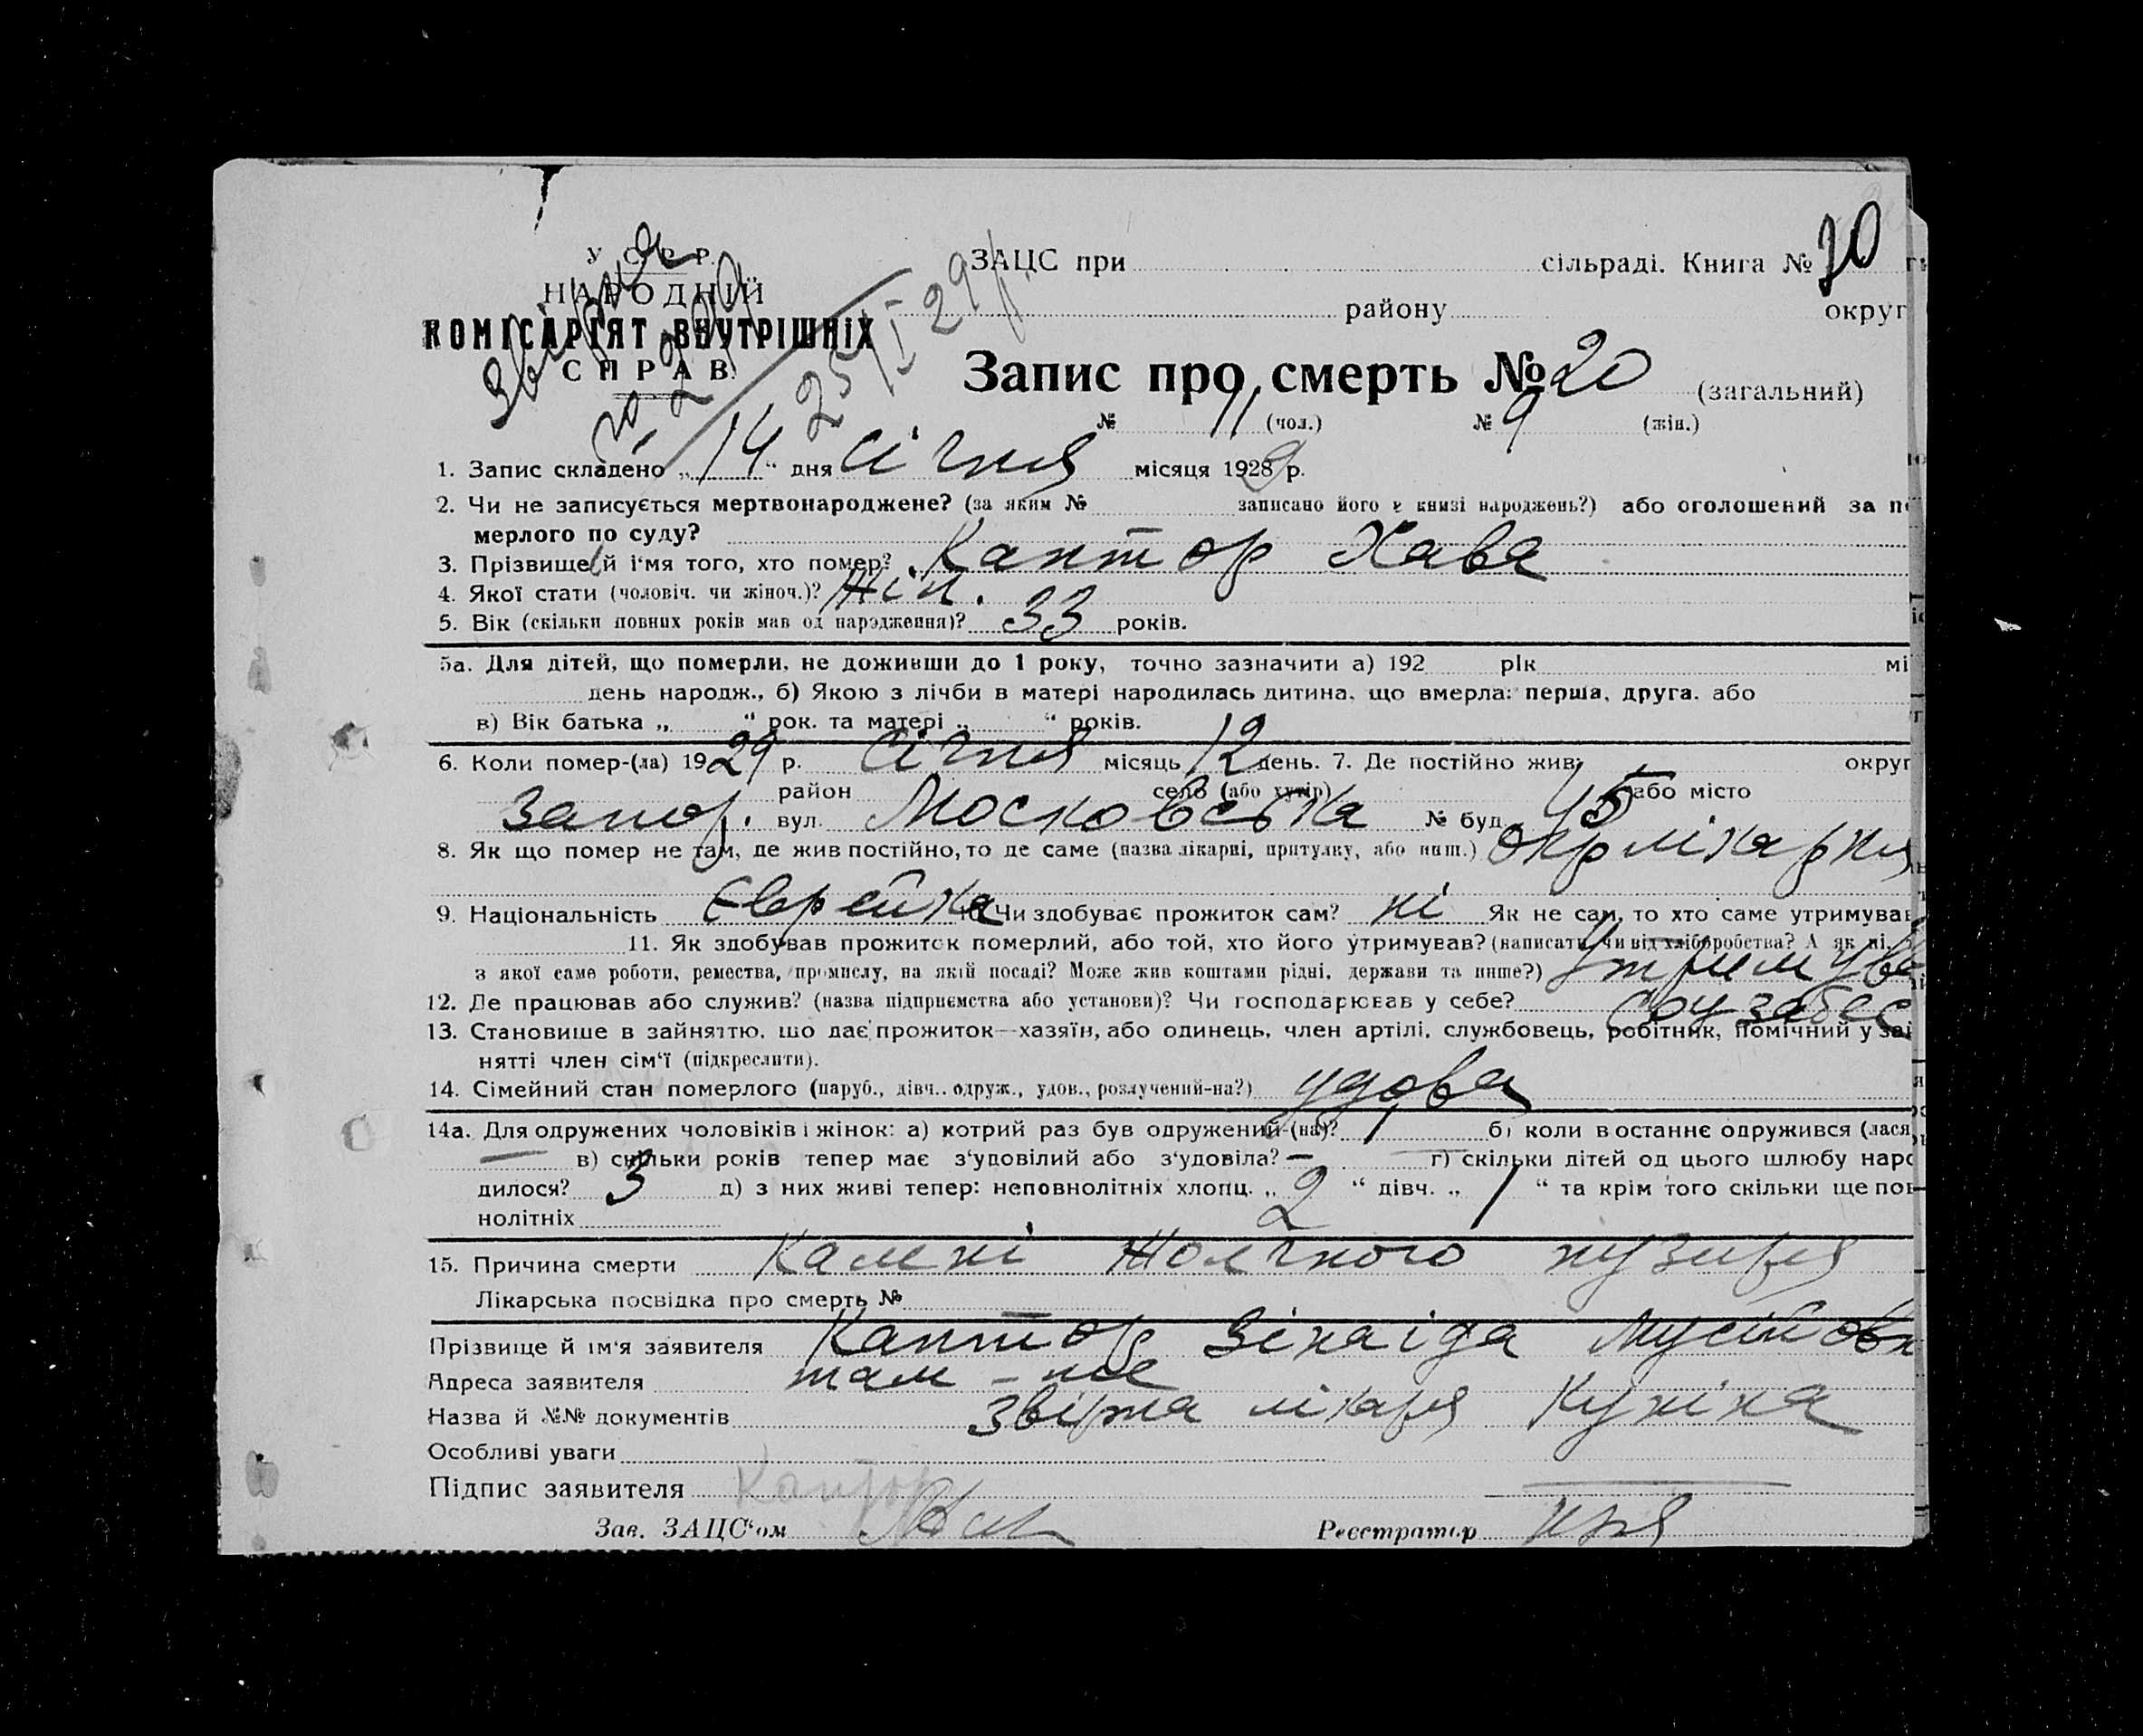 У. С. Р. Р.
НАРОДНІЙ
КОМІСАРІЯТ ВНУТРІШНІХ
СПРАВ.
25/I 29 р.
ЗАЦС при сільраді. Книга № 20
району округ
Запис про смерть № 20 (загальний)
№ 11 (чол.) № 9 (жін.)
1. Запис складено „ 14 “ дня січня місяця 1929 р.
2. Чи не записується мертвонароджене? (за яким № записано його в книзі народжень?) або оголошений за по
мерлого по суду?
3. Прізвище й і'мя того, хто помер? Кантор Хава
4. Якої стати (чоловіч. чи жіноч.)? Жін.
5. Вік (скільки повних років мав од народження)? 33 років.
5а. Для дітей, що померли, не доживши до 1 року, точно зазначити а) 192 рік мі
день народж., б) Якою з лічби в матері народилась дитина, що вмерла: перша, друга, або
в) Вік батька „ “ рок. та матері „ “ років.
6. Коли помер-(ла) 1929 р. січня місяць 12 день. 7. Де постійно жив: округ
район село (або хутір) або місто
Запор. вул. Московська № буд. 45
8. Як що помер не там, де жив постійно, то де саме (назва лікарні, притулку, або инш.) Окрлікарня
9. Національність Єврейка Чи здобуває прожиток сам? ні Як не сам, то хто саме утримував
11. Як здобував прожиток померлий, або той, хто його утримував? (написати, чи від хліборобства? А як ні,
з якої саме роботи, ремества, промислу, на якій посаді? Може жив коштами рідні, держави та инше?) Утримув
12. Де працював або служив? (назва підприємства або установи)? Чи господарював у себе? соцзабес
13. Становише в зайняттю, що дає прожиток—хазяїн, або одинець, член артілі, службовець, робітник, помічний у зай
нятті член сім'ї (підкреслити).
14. Сімейний стан померлого (паруб., дівч.. одруж., удов., розлучений-на?) удова
14а. Для одружених чоловіків і жінок: а) котрий раз був одружений-(на)? 1 б) коли в останнє одружився (лася
— в) скільки років тепер має з'удовілий або з'удовіла? — г) скільки дітей од цього шлюбу наро
дилося? 3 д) з них живі тепер: неповнолітніх хлопц. „ 2 “ дівч. „ 1 “ та крім того скільки ще пов
нолітніх
15. Причина смерти Камні Жолчного пузиря
Лікарська посвідка про смерть №
Прізвище й ім'я заявителя Кантор Зінаіда Мусійовн
Адреса заявителя там-же
Назва й №№ документів Звірка лікаря Куніна
Особливі уваги
Підпис заявителя Кантор
Зав. ЗАЦС'ом Реєстратор